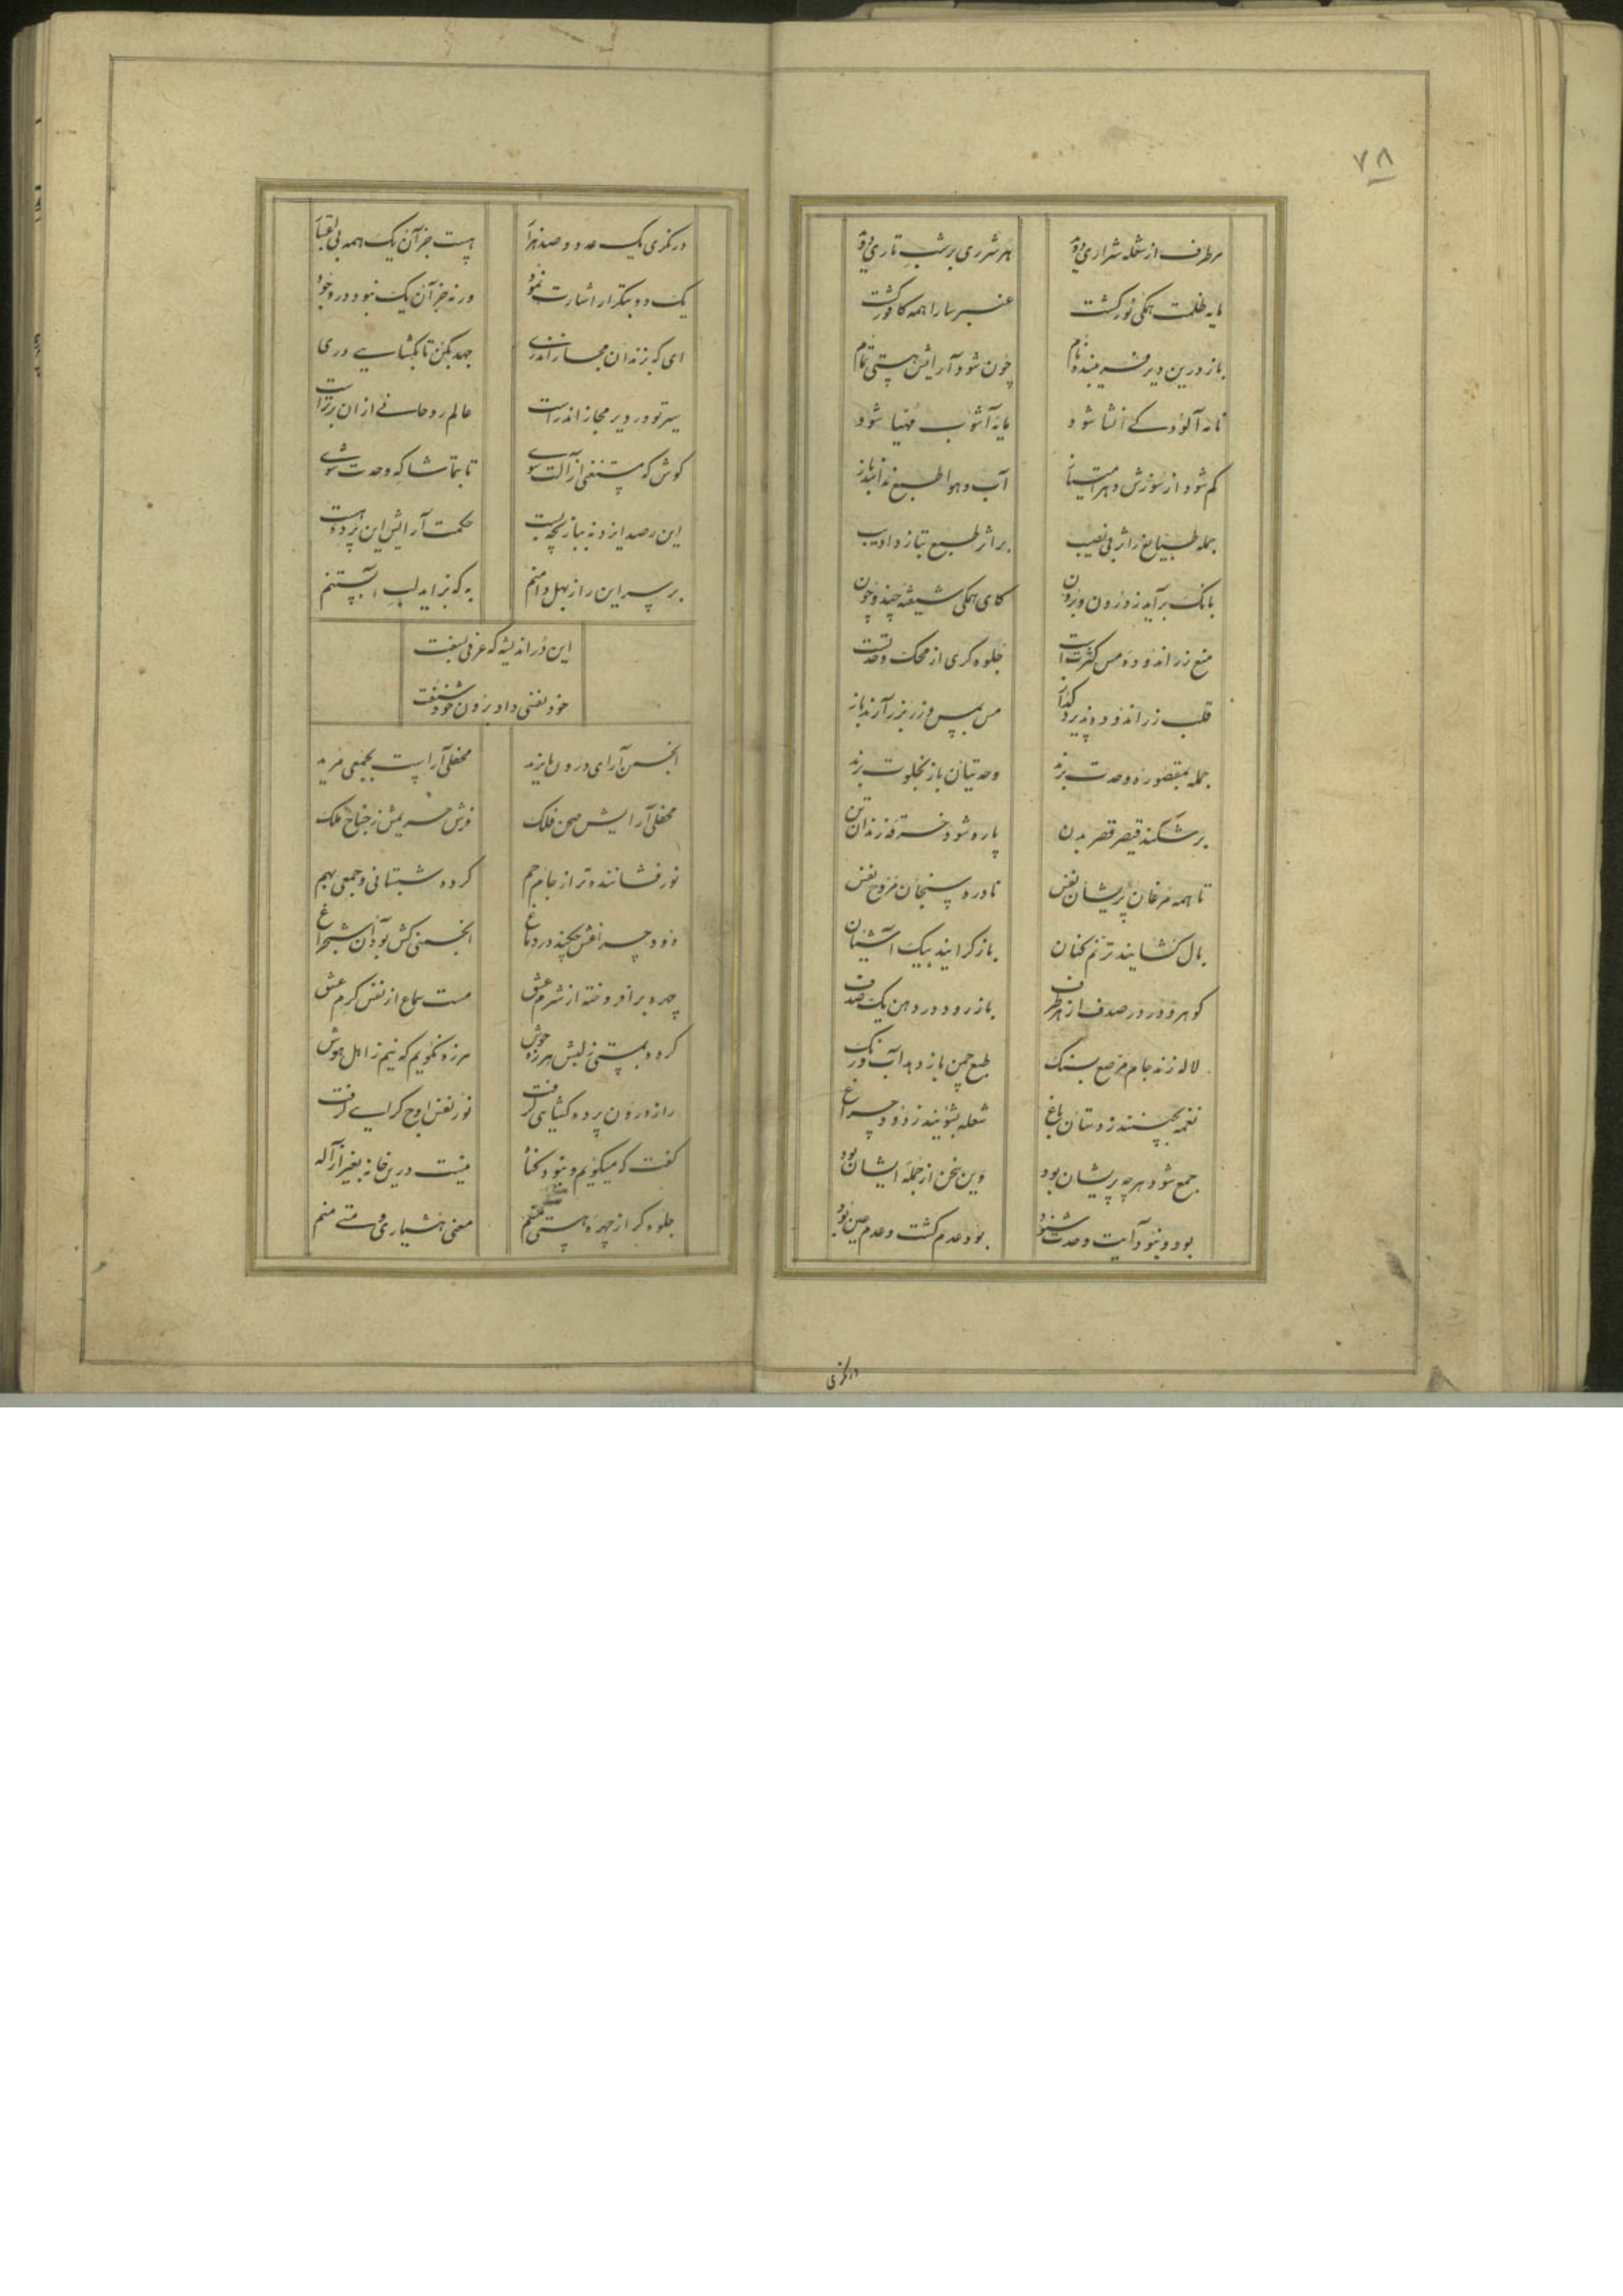 ۷۸
هر طرف از شعله شراری دود هر شرری بر شب تاری دود
مایه ظلمت همگی نور گشت عنبر سارا همه کافور گشت
باز درین دیر فریبنده نام چون شود آرایش هستی تمام
مایه آشوب مهیا شود
کم شود از سوزش و هم امتیاز آب و هوا طبع نداند باز
جمله طبایع ز اثر بی نصیب بر اثر طبع نیازد ادیب
بانک برآید ز درون و برون کای همگی شیفته چند و چون
منع زر اندوده مس کثرت است جلوه گری از محک وحدتست
قلب زر اندود پذیرد گداز مس بمس و زر بزر آرند باز
جمله بمقصوره وحدت برند وحدتیان باز بخلوت برند
برشکند قیصر قصر بدن پاره شود خرقه زندان تن
تا همه مرغان پریشان نفس نادره سنجان مروح نفس
بال کشایند ترنم کنان باز کرایند بیک آشیان
کوهر و در در صدف از هر طرف باز رود در دهن یک صدف
لاله زند جام مرصع بسنک طبع چمن باز دهد آب و رنک
نغمه بچینند ز دستان باغ شعله بشویند ز دود چراغ
جمع شود هر چه پریشان بود وین سخن از جمله ایشان بود
بود و نبود آیت وحدت شنود بود عدم کشت و عدم عین بود
درنکری
درنکری یک عدد و صد هزار هست جز آن یک همه بی اعتبار
یک دو بتکرار اشارت نمود ورنه جز آن یک نبود در وجود
ای که بزندان مجاز اندری جهد بکن تا بکشایی دری
سیر تو در دیر مجاز اندرست عالم روحانی از ان برترست
کوش که مستغنی از آلت شوی تا بتماشاکه وحدت شوی
این رصد ایزد نه ببازیچه بست حکمت آرایش این پرده هست
بر سر این راز بهل دامنم به که نزاید لب آبستنم
این در اندیشه که عرفی بسفت
خود نفسی داد برون خود شنفت
انجمن آرای درون بایزید محفلی آراست بجمعی مرید
محفلی آرایش صحن فلک فرش حریمش ز جناح ملک
نور فشاننده تر از جام جم کرده شبستانی و جمعی بهم
دود چراغش چکند در دماغ انجمنی کش بود آن شبچراغ
چهره برافروخته از شرم عشق مست سماع از نفس کرم عشق
کرد بمستی ز لبش هرزه جوش هرزه نکویم که نیم ز اهل هوش
راز درون پرده کشایی کرفت نور نفس اوج کرایی کرفت
کفت که میکویم و نبود کناه نیست درین خانه بغیر از اله
جلوه کر از چهره هستی منم معنی هشیاری و مستی منم